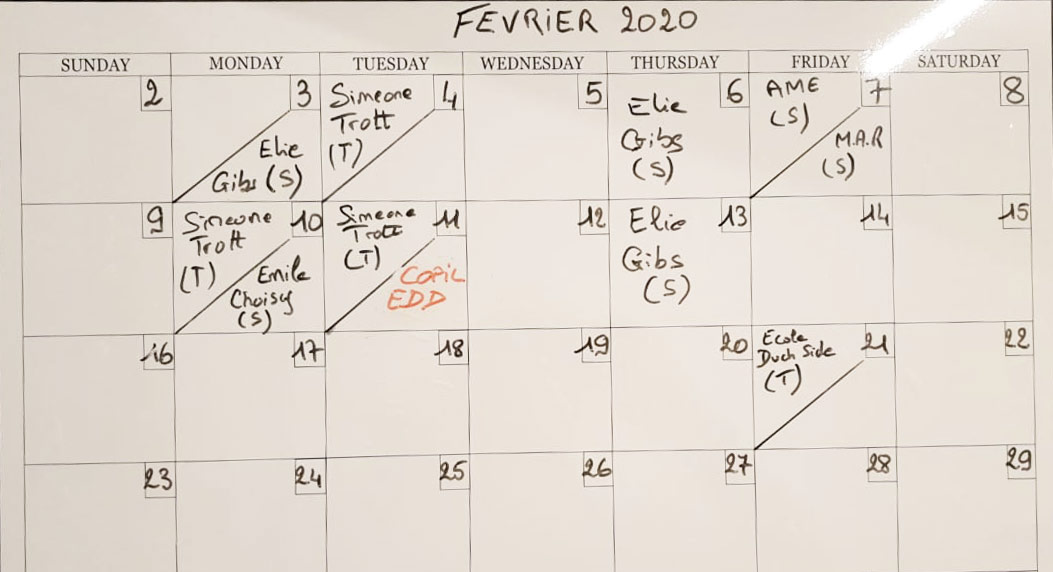 FEVRIER 2020
SUNDAY MONDAY TUESDAY WEDNESDAY THURSDAY FRIDAY SATURDAY
2
3
Elie
Gibs (S)
Simeone
Trott
(T)
4
5
6
Elie
Gibs
(S)
AME
(S)
7
M.A.R
(S)
8
9
Simeone
Trott
(T)
10
Emile
Choisy
(S)
Simeone
Trott
(T)
11
COPIL
EDD
12
13
Elie
Gibs
(S)
14
15
16
17
18
19
20
Ecole
Duch Side
(T)
21
22
23
24
25
26
27
28
29